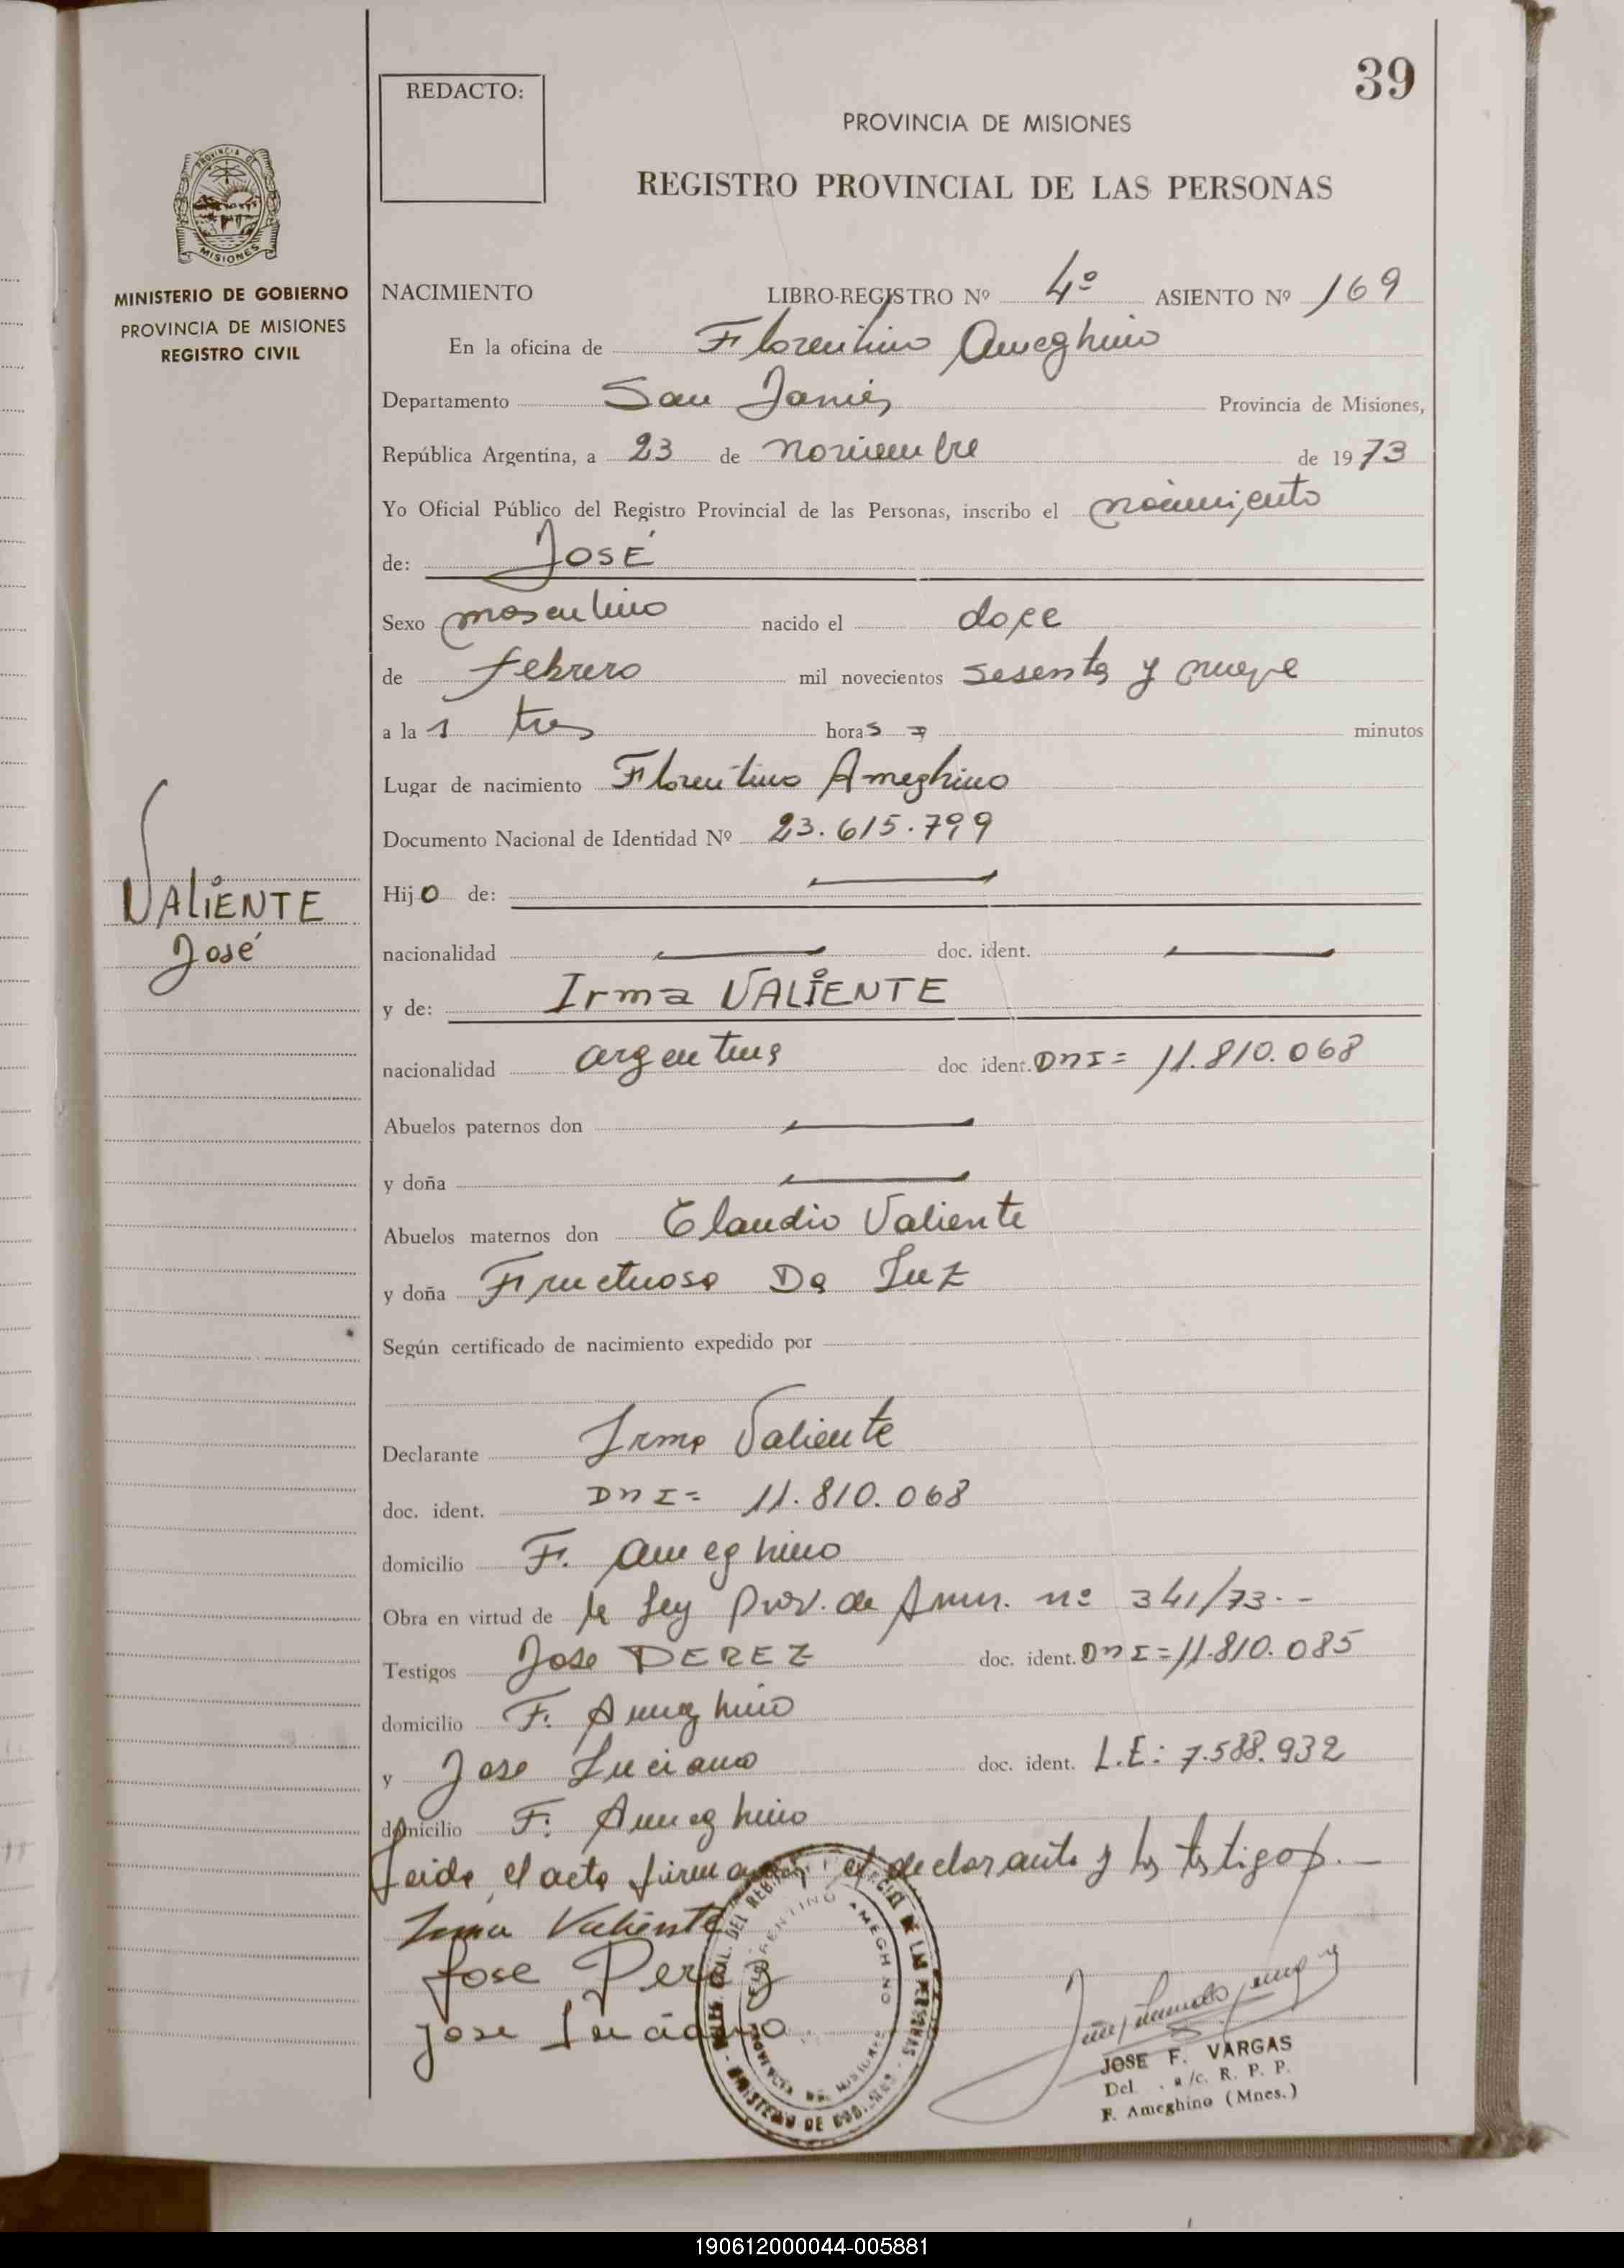 39
REDACTO:
PROVINCIA DE MISIONES
REGISTRO PROVINCIAL DE LAS PERSONAS
PROVINCIA DE
MISIONES
MINISTERIO DE GOBIERNO
PROVINCIA DE MISIONES
REGISTRO CIVIL
NACIMIENTO LIBRO-REGISTRO Nº 4º ASIENTO Nº 169
En la oficina de Florentino Ameghino
Departamento San Javier Provincia de Misiones,
República Argentina, a 23 de noviembre de 1973
Yo Oficial Público del Registro Provincial de las Personas, inscribo el nacimiento
de: JOSÉ
Sexo masculino nacido el doce
de febrero mil novecientos sesenta y nueve
a la s tres horas minutos
Lugar de nacimiento Florentino Ameghino
Documento Nacional de Identidad Nº 23.615.799
VALIENTE
José
Hijo de:
nacionalidad doc. ident.
y de: Irma VALIENTE
nacionalidad argentina doc ident. DNI= 11.810.068
Abuelos paternos don
y doña
Abuelos maternos don Claudio Valiente
y doña Fructuosa Da Luz
Según certificado de nacimiento expedido por
Declarante Irma Valiente
doc. ident. DNI= 11.810.068
domicilio F. Ameghino
Obra en virtud de la Ley Prov. de Amn. nº 341/73.-
Testigos Jose PEREZ doc. ident. DNI=11.810.085
domicilio F. Ameghino
y Jose Luciano doc. ident. L.E: 7.588.932
domicilio F. Ameghino
Leida el acta firman el declarante y los testigos.—
Irma Valiente
Jose Perez
Jose Luciano
FLORENTINO AMEGHINO
PROVINCIA DE MISIONES
MINISTERIO DE GOBIERNO
JOSE F. VARGAS
Del. a/c. R. P. P.
F. Ameghino (Mnes.)
190612000044-005881